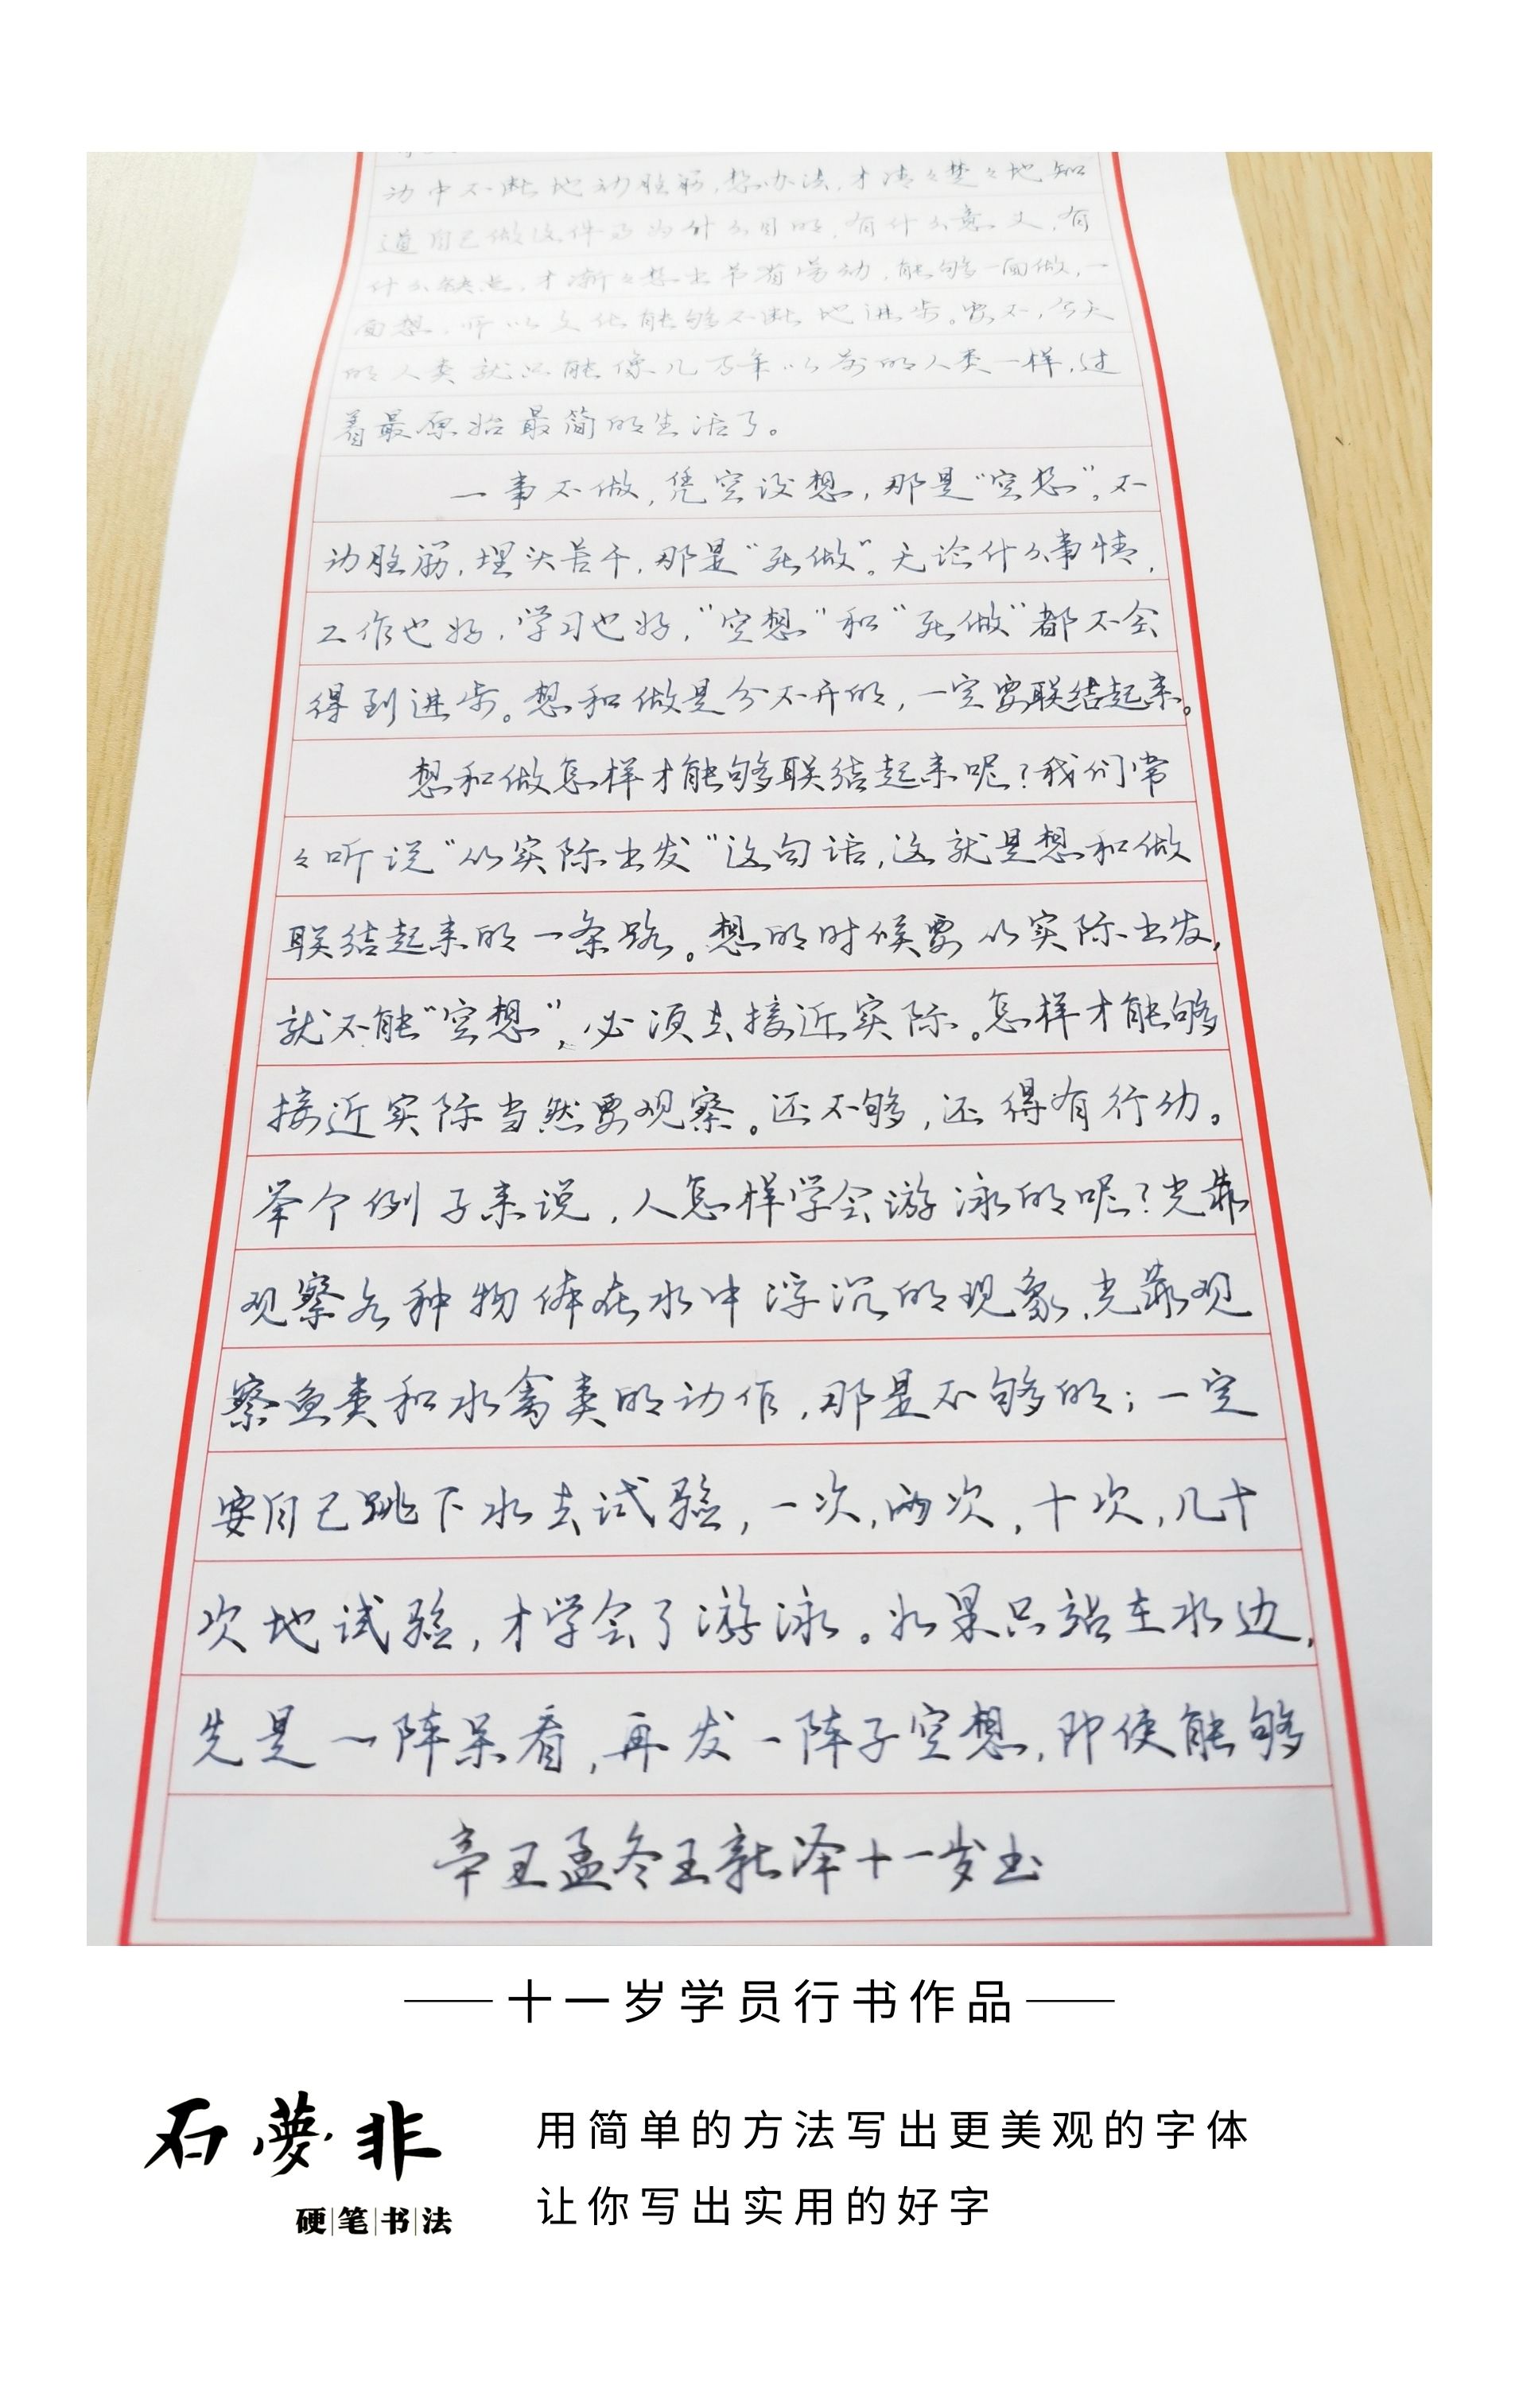 动中不断地动脑筋,想办法,才清々楚々地知
道自己做这件事为什么目的,有什么意义,有
什么缺点,才渐々想出节省劳动,能够一面做,一
面想,所以文化能够不断地进步。要不,今天
的人类就只能像几万年以前的人类一样,过
着最原始最简的生活了。
一事不做,凭空设想,那是“空想”。不
动脑筋,埋头苦干,那是“死做”。无论什么事情,
工作也好,学习也好,“空想”和“死做”都不会
得到进步。想和做是分不开的,一定要联结起来。
想和做怎样才能够联结起来呢?我们常
々听说“从实际出发”这句话,这就是想和做
联结起来的一条路。想的时候要从实际出发,
就不能“空想”,必须去接近实际。怎样才能够
接近实际当然要观察。还不够,还得有行动。
举个例子来说,人怎样学会游泳的呢?光靠
观察各种物体在水中浮沉的现象,光靠观
察鱼类和水禽类的动作,那是不够的;一定
要自己跳下水去试验,一次,两次,十次,几十
次地试验,才学会了游泳。如果只站在水边,
先是一阵呆看,再发一阵子空想,即使能够
辛丑孟冬王新泽十一岁书
十一岁学员行书作品
石夢非
硬笔书法
用简单的方法写出更美观的字体
让你写出实用的好字